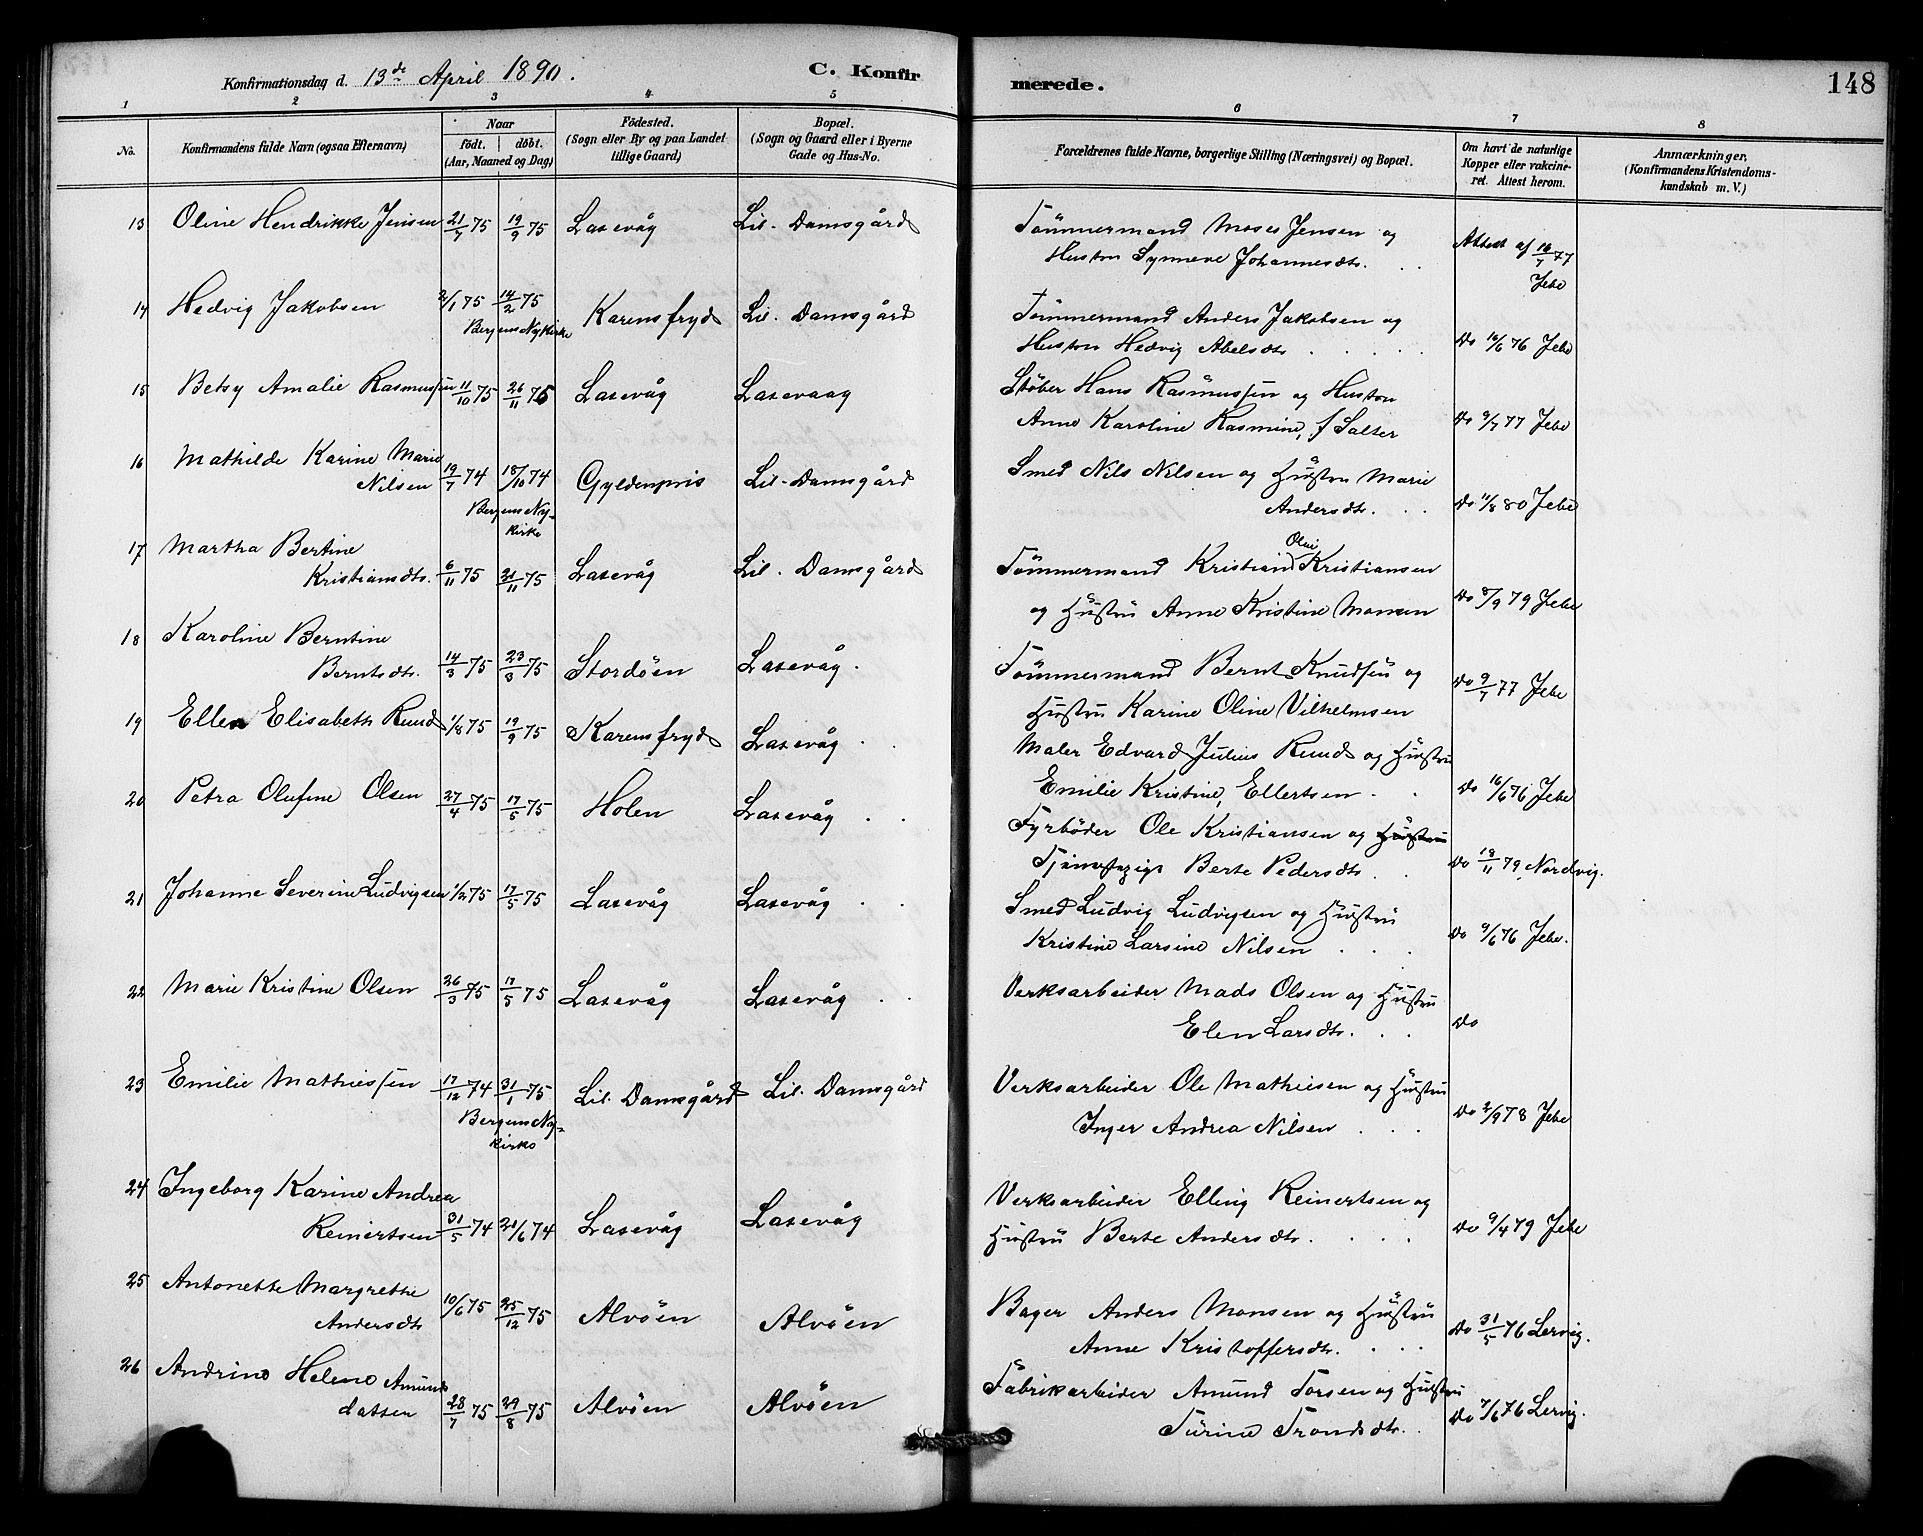 Konfirmationsdag d. 13de April 1890. C. Konfirmerede. 148
1 2 3 4 5 6 7 8
No.
Konfirmandens fulde Navn (ogsaa Efternavn)
Naar
født. døbt.
(Aar, Maaned og Dag)
Fødested.
(Sogn eller By og paa Landet
tillige Gaard)
Bopæl.
(Sogn og Gaard eller i Byerne
Gade og Hus-No.
Forældrenes fulde Navne, borgerlige Stilling (Næringsvei) og Bopæl.
Om havt de naturlige
Kopper eller vakcine-
ret. Attest herom.
Anmærkninger.
(Konfirmandens Kristendoms-
kundskab m. V.)
13 Oline Hendrikke Jensen 21/7 75 19/9 75 Laxevåg Lil. Damsgård
Tømmermand Moses Jensen og
Hustru Synneve Johannesdtr. Attest af 16/7 77
Jebe
14 Hedvig Jakobsen 2/1 75 14/2 75 Karensfryd Lil. Damsgård
Bergens Nykirke
Tømmermand Anders Jakobsen og
Hustru Hedvig Abelsdtr. Do 16/6 76 Jebe
15 Betsy Amalie Rasmussen 11/10 75 26/11 75 Laxevåg Laxevaag
Støber Hans Rasmussen og Hustru
Anne Karoline Rasmine, f Salter Do 9/7 77 Jebe
16 Mathilde Karine Marie
Nilsen 19/7 74 18/10 74 Gyldenpris Lil. Damsgård
Bergens Ny-
kirke
Smed Nils Nilsen og Hustru Marie
Andersdtr. Do 11/8 80 Jebe
17 Martha Bertine
Kristiansdtr. 6/11 75 21/11 75 Laxevåg Lil. Damsgård
Olai
Tømmermand Kristian Kristiansen
og Hustru Anne Kristine Monsen Do 8/9 79 Jebe
18 Karoline Berntine
Berntsdtr. 14/3 75 23/3 75 Stordøen Laxevåg.
Tømmermand Bernt Knudsen og
Hustru Karine Oline Vilhelmsen Do 9/7 77 Jebe
19 Ellen Elisabeth Rund 1/8 75 19/9 75 Karensfryd Laxevåg
Maler Edvard Julius Rund og Hustru
Emilie Kristine, Ellertsen Do 16/6 76 Jebe
20 Petra Olufine Olsen 27/4 75 17/5 75 Holen Laxevåg
Fyrbøder Ole Kristiansen og Hustru
Berte Pedersdtr. Do 18/11 79 Nordvig.
21 Johanne Severine Ludvigsen 1/2 75 17/5 75 Laxevåg Laxevåg
Smed Ludvig Ludvigsen og Hustru
Kristine Larsine Nilsen Do 9/6 76 Jebe.
22 Marie Kristine Olsen 26/3 75 17/5 75 Laxevåg Laxevåg
Verksarbeider Mads Olsen og Hustru
Elen Larsdtr. Do
23 Emilie Mathiessen 17/12 74 31/1 75 Lil. Damsgård Lil. Damsgård
Bergens Ny-
kirke
Verksarbeider Ole Mathiesen og Hustru
Inger Andrea Nilsen Do 2/9 78 Jebe
24 Ingeborg Karine Andrea
Reinertsen 31/5 74 21/6 74 Laxevåg Laxevåg
Verksarbeider Elling Reinertsen og
Hustru Berte Andersdtr. Do 9/4 79 Jebe
25 Antonette Margrethe
Andersdtr 10/6 75 25/12 75 Alvøen Alvøen
Bager Anders Monsen og Hustru
Anne Kristoffersdtr. Do 31/5 76 Lervig.
26 Andrine Helene Amunds
datter 28/7 75 29/8 75 Alvøen Alvøen
Fabrikarbeider Amund Torsen og Hustru
Turine Trondsdtr. Do 7/6 76 Lervig.